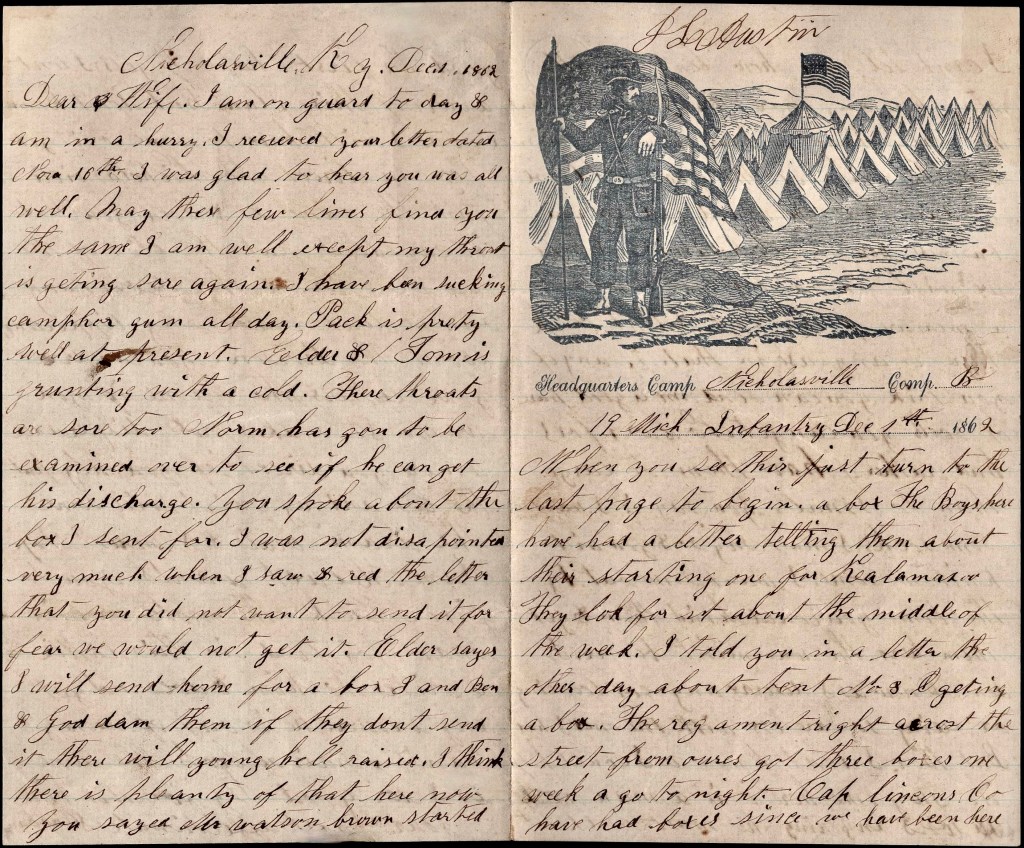 Nicholasville, Ky. Dec 1, 1862
Dear Wife. I am on guard to day &
am in a hurry. I received your letter dated
Nov 16th I was glad to hear you was all
well. May thes few lines find you
the same I am well except my throt
is geting sore again. I have ben sucking
camphor gum all day. Pack is prety
well at present. Eelder & Tom is
grunting with a cold. There throats
are sore too Norm has gon to be
examined over to see if he can get
his discharge. You spoke about the
box I sent for. I was not disapointed
very much when I saw & red the letter
that you did not want to send it for
fear we would not get it. Elder sayes
I will send home for a box I and Ben
& God dam them if they dont send
it there will young hell raised. I think
there is pleanty of that here now
You sayed Mr watson brown started
J L Austin
Headquarters Camp Nicholasville Comp. B
19 Mich. Infantry Dec 1th. 1862
When you see this just turn to the
last page to begin. a box The Boys here
have had a letter telling them about
their starting one for Kealamazoo
They lok for it about the middle of
the week. I told you in a letter the
other day about tent No 3 geting
a box. The reg ament right acrost the
street from oures got three boxes one
week a go to night. Cap lincons Co
have had boxes since we have been here